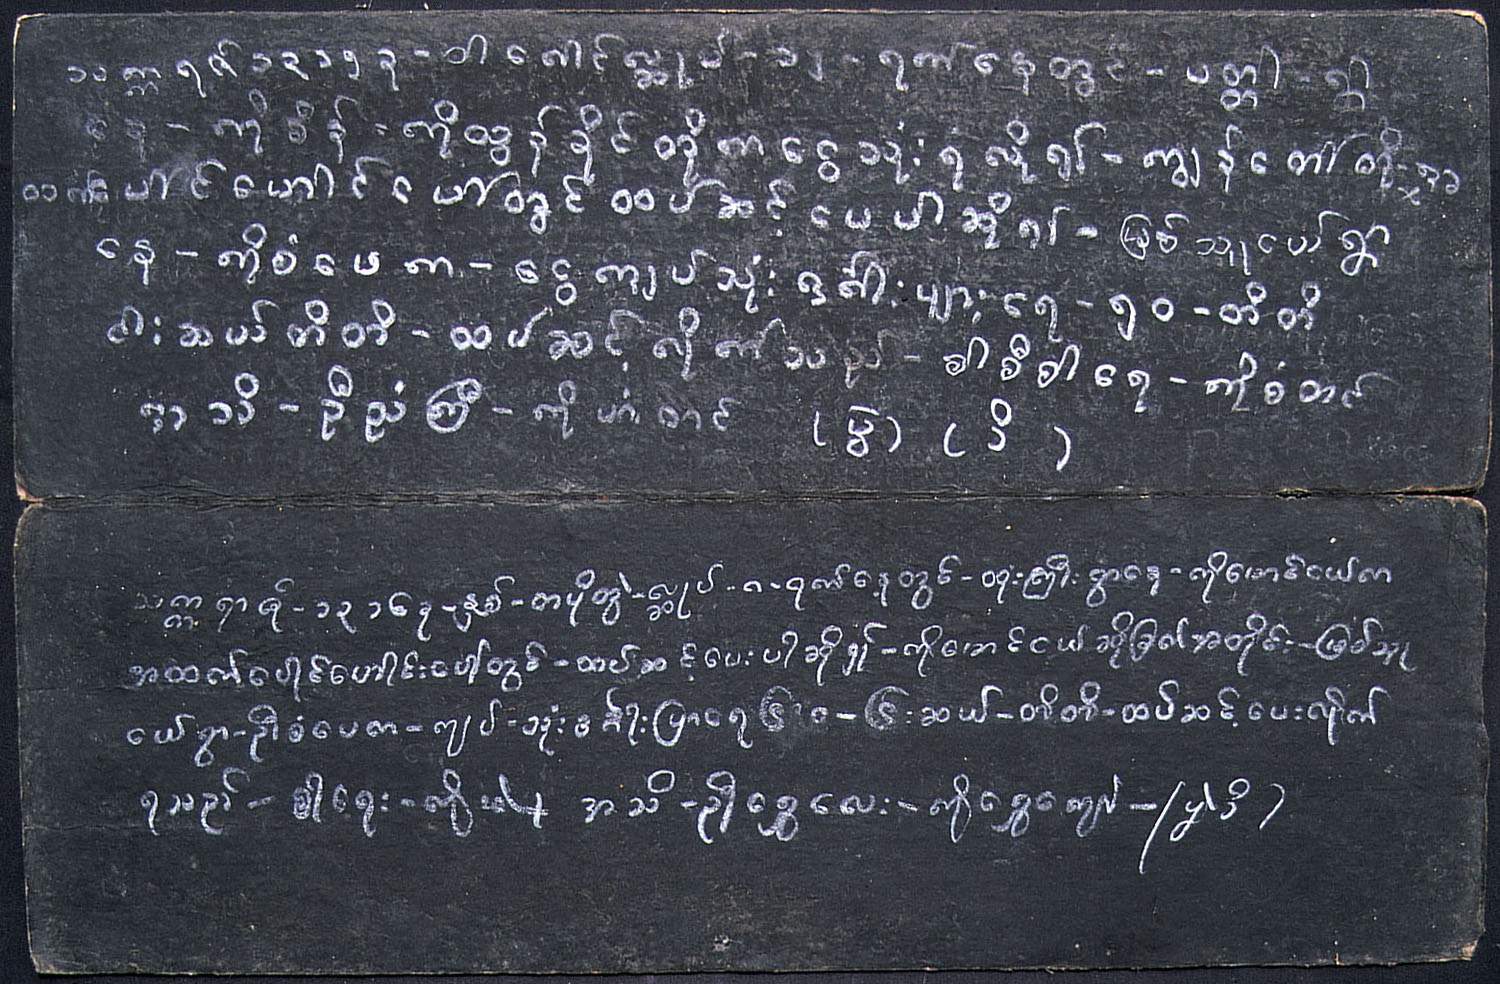 သက္ကရာဇ် ၁၃၁၅ ခု - ဝါခေါင်လ္ဆုပ် - ၁၂ - ရက်နေ့တွင် - ပတ္တါ - ရွာ
နေ - ကိုစိန် - ကိုထွန်ခိုင်တို့က ငွေသုံးရလို၍ - ကျွန်တော်တို့
ထက်ပေါင်ဟောင်ပေါ်တွင် ထပ်ဆင့်ပေပါဆို၍ - မြစ်သူငယ်ရွာ
နေ - ကိုစံဖေက - ငွေကျပ်သုံးဒင်္ဂါးများရေ - ၅၀ - တိတိ
ငါးဆယ်တိတိ - ထပ်ဆင့်လိုက်သည် - စါစီစါရေ - ကိုစံတင်
အသိ - ဦညံကြီ - ကိုဟံတင် ( ) ( ဒိ )
သက္ကရာဇ် - ၁၃၁၆ ခု - နှစ် - တပို့တွဲ - လ္ဆုပ် - ၈ - ရက်နေ့တွင် - ထုံးကြီးရွာနေ - ကိုမောင်ငယ်က
အထက်ပေါင်ဟောင်းပေါ်တွင် - ထပ်ဆင့်ပေးပါဆို၍ - ကိုမောင်ငယ်ဆိုမြွက်အတိုင်း - မြစ်သူ
ငယ်ရွာ - ဦးစံဖေက - ကျပ် - သုံးဒင်္ဂါးပြားရေ ၆၀ - ၆းဆယ် - တိတိ - ထပ်ဆင့်ပေးလိုက်
ရသည် - စါရေး - အသိ - ဦးရွှေလေး - ကိုရွှေကျော် - ( ပွဲဒိ )